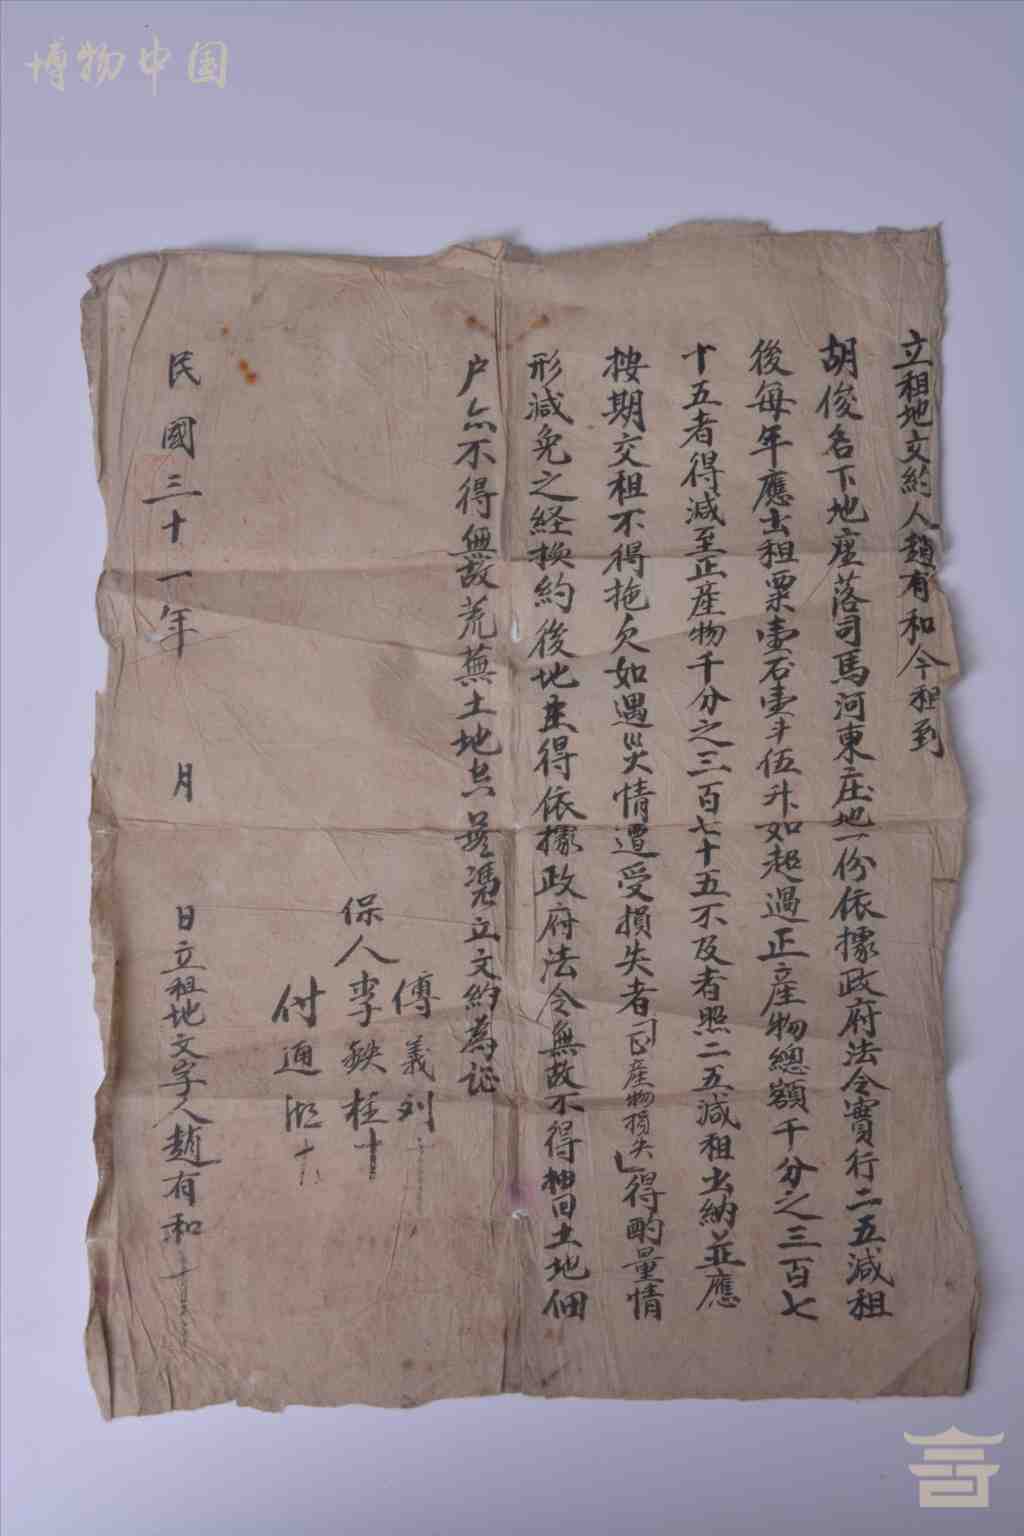 博物中国
立租地文約人趙有和今租到
胡俊名下地座落司馬河東庄地一份依據政府法令實行二五減租
後每年應出租粟壹石壹斗伍升如超過正產物總額千分之三百七
十五者得減至正產物千分之三百七十五不及者照二五減租出納並應
按期交租不得拖欠如遇災情遭受損失者「正產物損失」得酌量情
形減免之経換約後地主得依據政府法令無故不得抽回土地佃
户亦不得無故荒蕪土地空憑立文約為証
保人
傅義列
李鉄柱十
付通 十
民國三十一年 月 日立租地文字人趙有和 十